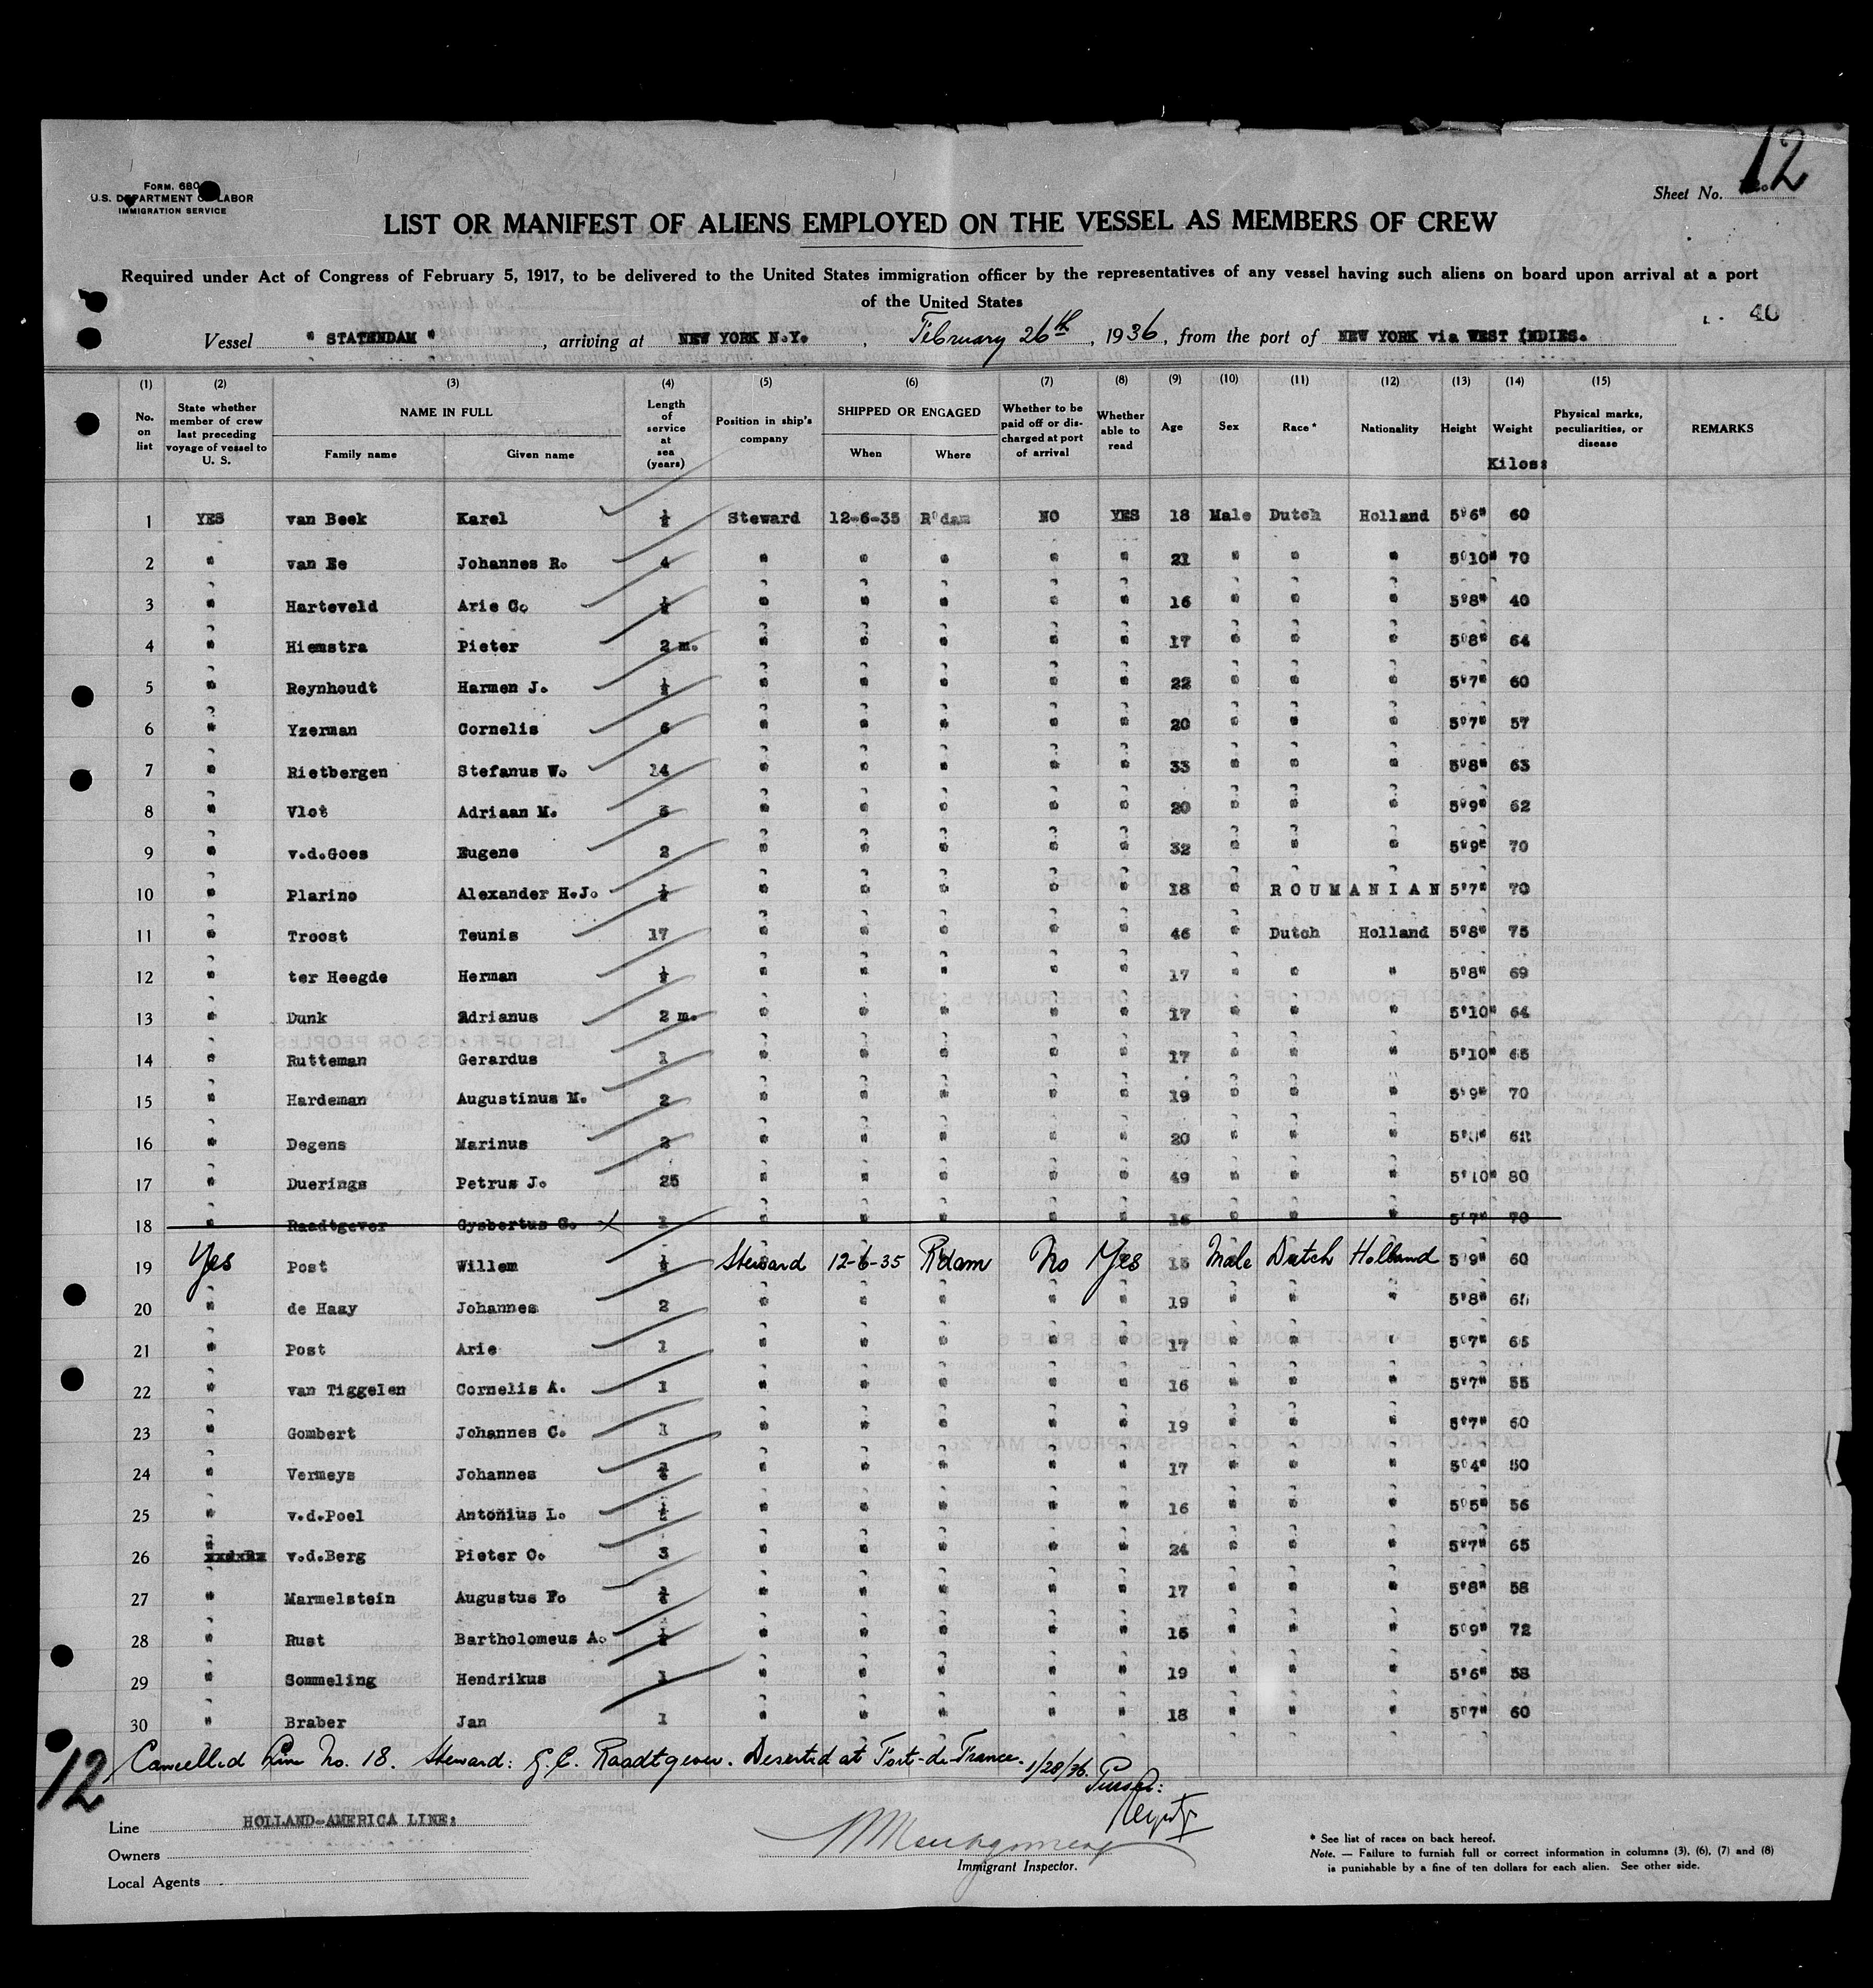 12
FORM. 680
U.S. DEPARTMENT OF LABOR
IMMIGRATION SERVICE
Sheet No.
LIST OR MANIFEST OF ALIENS EMPLOYED ON THE VESSEL AS MEMBERS OF CREW
Required under Act of Congress of February 5, 1917, to be delivered to the United States immigration officer by the representatives of any vessel having such aliens on board upon arrival at a port
of the United States
40
Vessel " STATENDAM ", arriving at NEW YORK N.Y., February 26th, 1936, from the port of NEW YORK via WEST INDIES.
(1) (2) (3) (4) (5) (6) (7) (8) (9) (10) (11) (12) (13) (14) (15)
No. on list State whether member of crew last preceding voyage of vessel to U. S. NAME IN FULL Family name Given name Length of service at sea (years) Position in ship's company SHIPPED OR ENGAGED When Where Whether to be paid off or discharged at port of arrival Whether able to read Age Sex Race* Nationality Height Weight Kilos: Physical marks, peculiarities, or disease REMARKS
1 YES van Beek Karel ½ Steward 12-6-35 R'dam NO YES 18 Male Dutch Holland 5'6" 60
2 " van Ee Johannes R. 4 " " " " " 21 " " " 5'10" 70
3 " Harteveld Arie C. ½ " " " " " 16 " " " 5'8" 40
4 " Hiemstra Pieter 2 m. " " " " " 17 " " " 5'8" 64
5 " Reynhoudt Harmen J. ½ " " " " " 22 " " " 5'7" 60
6 " Yzerman Cornelis 6 " " " " " 20 " " " 5'7" 57
7 " Rietbergen Stefanus W. 14 " " " " " 33 " " " 5'8" 63
8 " Vlot Adriaan M. " " " " " 20 " " " 5'9" 62
9 " v.d.Goes Eugene 2 " " " " " 32 " " " 5'9" 70
10 " Plarino Alexander H.J. ½ " " " " " 18 " ROUMANIAN 5'7" 70
11 " Troost Teunis 17 " " " " " 46 " Dutch Holland 5'8" 75
12 " ter Heegde Herman ½ " " " " " 17 " " " 5'8" 69
13 " Dunk Adrianus 2 m. " " " " " 17 " " " 5'10" 64
14 " Rutteman Gerardus 1 " " " " " 17 " " " 5'10" 65
15 " Hardeman Augustinus M. 2 " " " " " 19 " " " 5'9" 70
16 " Degens Marinus 2 " " " " " 20 " " "
17 " Duerings Petrus J. 25 " " " " " 49 " " " 5'10" 80
18 " Raadtgever Gysbertus C. 1 " " " " " 16 " " " 5'7" 70
19 Yes Post Willem ½ Steward 12-6-35 R'dam No Yes 15 Male Dutch Holland 5'9" 60
20 " de Haay Johannes 2 " " " " " 19 " " " 5'8"
21 " Post Arie 1 " " " " " 17 " " " 5'7" 65
22 " van Tiggelen Cornelis A. 1 " " " " " 16 " " " 5'7" 55
23 " Gombert Johannes C. 1 " " " " " 19 " " " 5'7" 60
24 " Vermeys Johannes " " " " " 17 " " " 5'4" 50
25 " v.d.Poel Antonius L. ½ " " " " " 16 " " " 5'5" 56
26 " v.d.Berg Pieter C. 3 " " " " " 24 " " " 5'7" 65
27 " Marmelstein Augustus F. " " " " " 17 " " " 5'8" 58
28 " Rust Bartholomeus A. ½ " " " " " 16 " " " 5'9" 72
29 " Sommeling Hendrikus 1 " " " " " 19 " " " 5'6" 58
30 " Braber Jan 1 " " " " " 18 " " " 5'7" 60
12
Cancelled Line No. 18. Steward: G.C. Raadtgever. Deserted at Fort-de-France. 1/28/36. Purser:
Line HOLLAND-AMERICA LINE:
Owners
Local Agents
Immigrant Inspector.
* See list of races on back hereof.
Note. — Failure to furnish full or correct information in columns (3), (6), (7) and (8)
is punishable by a fine of ten dollars for each alien. See other side.